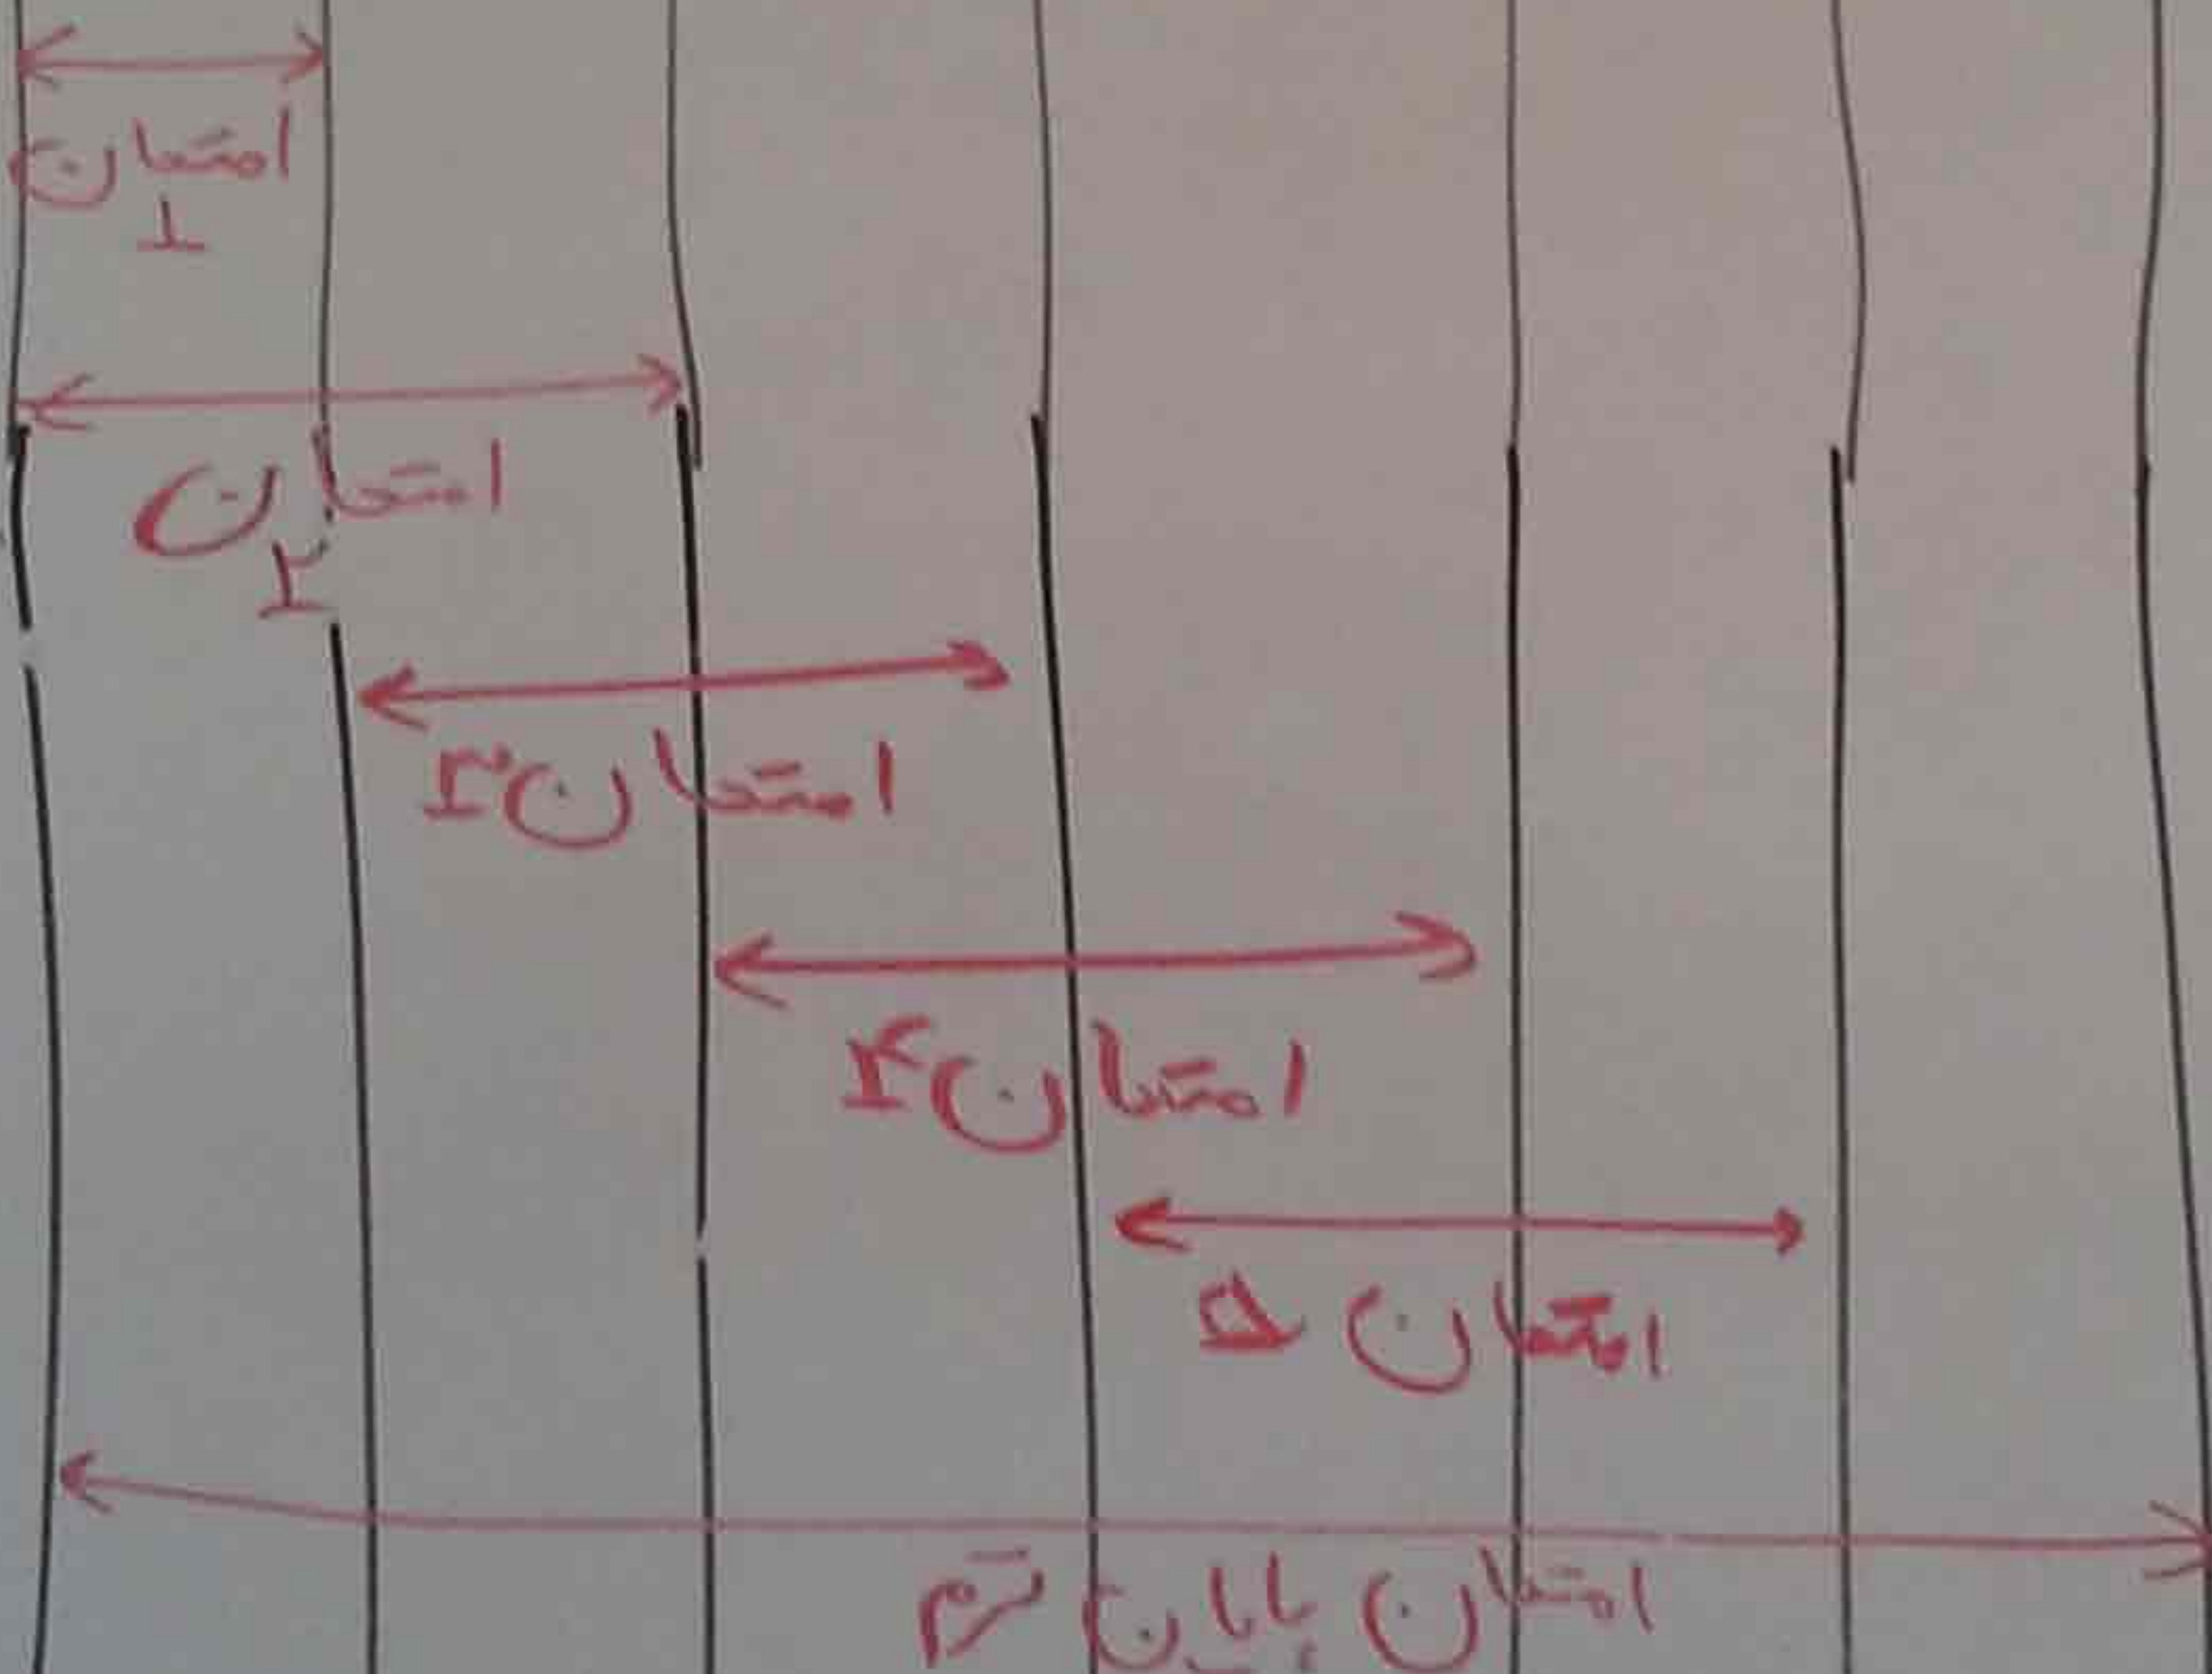 امتحان
۱
امتحان
۲
امتحان ۳
امتحان ۴
امتحان ۵
امتحان پایان ترم